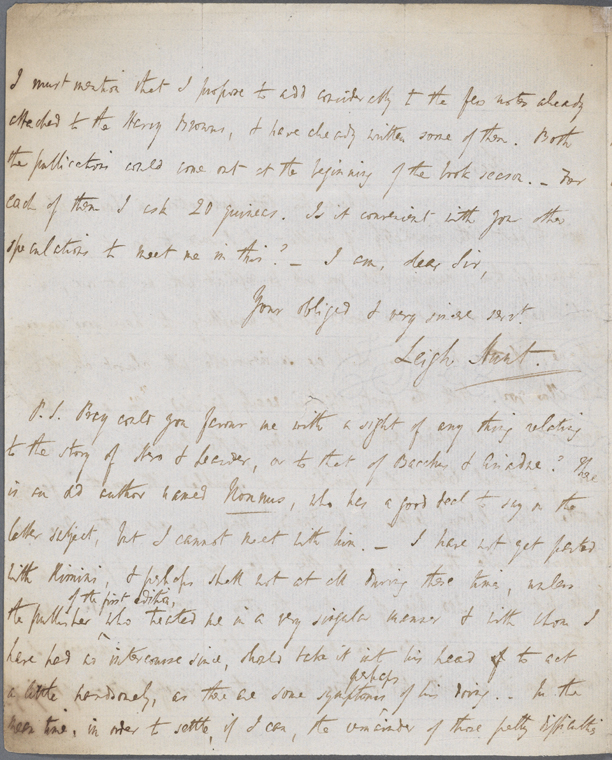 I must mention that I propose to add considerably to the few notes already
attached to the Harry Browns, & have already written some of them. Both
the publications could come out at the beginning of the book season. – For
each of them I ask 20 guineas. Is it convenient with your other
speculations to meet me in this? – I am, dear Sir,
Your obliged & very sincere servt.
Leigh Hunt.
P.S. Pray could you favour me with a sight of any thing relating
to the story of Hero & Leander, or to that of Bacchus & Ariadne? There
is an old author named Nonnus, who has a good deal to say on the
latter subject, but I cannot meet with him. – I have not yet parted
with Rimini, & perhaps shall not at all during these times, unless
of the first edition,
the publisher who treated me in a very singular manner & with whom I
have had no intercourse since, should take it into his head to act
perhaps
a little handsomely, as there are some symptoms of his doing. – In the
mean time, in order to settle, if I can, the remainder of those petty difficulties